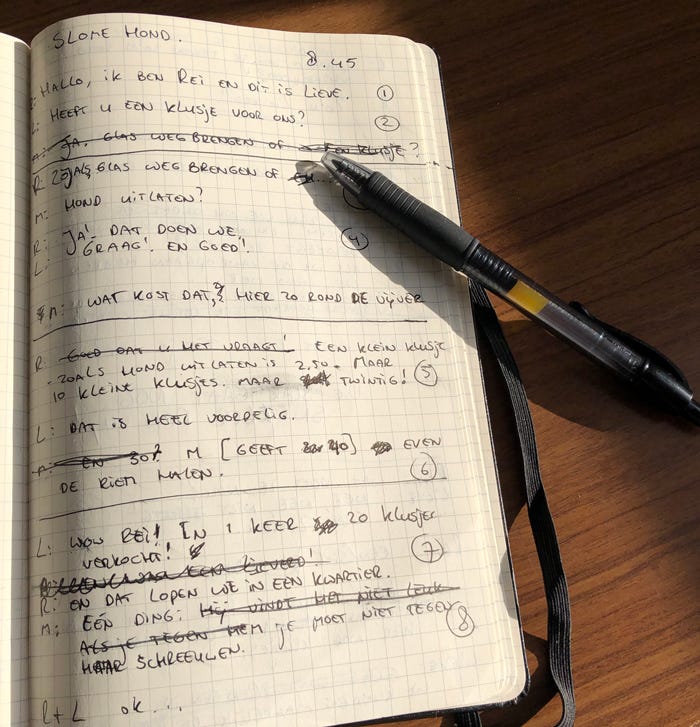 SLOME HOND.
8.45
R: HALLO, ik BEN REI EN DIT IS LIEVE. 1
L: HEEFT U EEN KLUSJE VOOR ONS? 2
JA, GLAS WEG BRENGEN OF EEN KLUSJE?
R: ZOALS GLAS WEG BRENGEN OF
M: HOND UITLATEN?
R: JA! DAT DOEN WE
L: GRAAG! EN GOED! 4
M: WAT KOST DAT, HIER ZO ROND DE VIJVER
R: GOED DAT U HET VRAAGT! EEN KLEIN KLUSJE
- ZOALS HOND UITLATEN IS 2,50. MAAR
10 KLEINE KLUSJES. MAAR TWINTIG! 5
L: DAT IS HEEL VOORDELIG.
EN 30? M [GEEFT 40] EVEN
DE RIEM HALEN. 6
L: WOW REI! IN 1 KEER 20 KLUSJES
VERKOCHT! 7
R: EN DAT LOPEN WE IN EEN KWARTIER.
M: EEN DING: HIJ VINDT HET NIET LEUK
ALS JE TEGEN HEM JE MOET NIET TEGEN
HAAR SCHREEUWEN. 8
R+L ok...